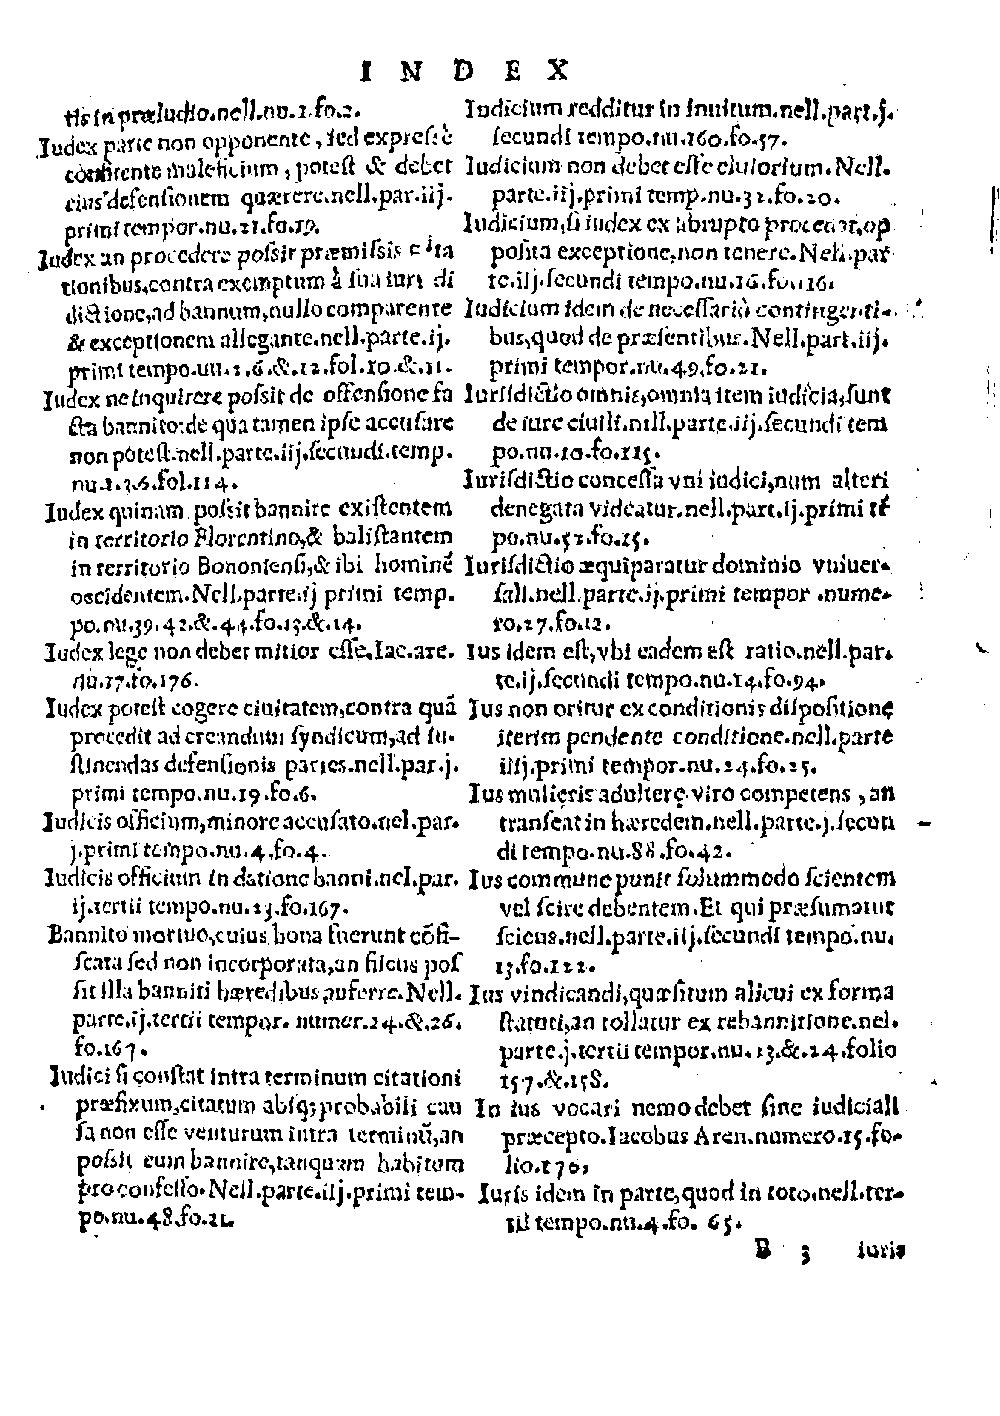 INDEX
tis in præludio.nell.nu.1.fo.2.
Iudex parte non opponente, sed expresse
confitente maleficium, potest & debet
eius defensionem quærere.nell.par.iij.
primi tempor.nu.21.fo.19.
Iudex an procedere possit præmissis cita
tionibus,contra exemptum à sua iuris di
dictione,ad bannum,nullo comparente
& exceptionem allegante.nell.parte.ij.
primi tempo.nu.1.6.&.12.fol.10.&.11.
Iudex ne inquirere possit de offensione fa
cta bannito:de qua tamen ipse accusare
non potest.nell.parte.iij.secundi.temp.
nu.1.3.6.fol.114.
Iudex quinam possit bannire existentem
in territorio Florentino,& balistantem
in territorio Bononiensi,& ibi hominē
occidentem.Nell.parte.ij primi temp.
po.nu.39.42.&.44.fo.13.&.14.
Iudex lege non debet mitior esse.Iac.are.
nu.17.fo.176.
Iudex potest cogere ciuitatem,contra quā
precedit ad creandum syndicum,ad su-
stinendas defensionis partes.nell.par.j.
primi tempo.nu.19.fo.6.
Iudicis officium,minore accusato.nel.par.
j.primi tempo.nu.4.fo.4.
Iudicis officium in datione banni.nel.par.
ij.tertii tempo.nu.23.fo.167.
Bannito mortuo,cuius bona fuerunt cōfi-
scata sed non incorporata,an fiscus pos
sit illa banniti hæredibus auferre.Nell.
parte.ij.tertii tempor. numer.24.&.26.
fo.167.
Iudici si constat intra terminum citationi
præfixum,citatum absq; probabili cau
sa non esse venturum intra terminū,an
possit eum bannire,tanquam habitum
pro confesso.Nell.parte.iij.primi tem-
po.nu.48.fo.21.
Iudicium redditur in inuitum.nell.part.j.
secundi tempo.nu.160.fo.57.
Iudicium non debet esse elusorium.Nell.
parte.iij.primi temp.nu.32.fo.20.
Iudicium,si iudex ex abrupto procedat,op
posita exceptione,non tenere.Nell.par
te.iij.secundi tempo.nu.16.fo.116.
Iudicium idem de necessariò contingenti-
bus,quod de præsentibus.Nell.part.iij.
primi tempor.nu.49.fo.21.
Iurisdictio omnis,omnia item iudicia,sunt
de iure ciuili.nill.parte.iij.secundi tem
po.nu.10.fo.115.
Iurisdictio concessa vni iudici,num alteri
denegata videatur.nell.part.ij.primi tē
po.nu.52.fo.15.
Iurisdictio æquiparatur dominio vniuer-
sali.nell.parte.ij.primi tempor.nume-
ro.27.fo.12.
Ius idem est,vbi eadem est ratio.nell.par.
te.ij.secundi tempo.nu.14.fo.94.
Ius non oritur ex conditionis dispositione
iterim pendente conditione.nell.parte
iiij.primi tempor.nu.24.fo.25.
Ius mulieris adulterę viro competens, an
transeat in hæredem.nell.parte.j.secun
di tempo.nu.88.fo.42.
Ius commune punit solummodo scientem
vel scire debentem.Et qui præsumatur
sciens.nell.parte.iij.secundi tempo.nu.
13.fo.122.
Ius vindicandi,quæsitum alicui ex forma
statuti,an tollatur ex rebannitione.nel.
parte.j.tertii tempor.nu.13.&.24.folio
157.&.158.
In ius vocari nemo debet sine iudiciali
præcepto.Iacobus Aren.numero.15.fo-
lio.170,
Iuris idem in parte,quod in toto.nell.ter-
tii tempo.nu.4.fo. 65.
B 3 iuris